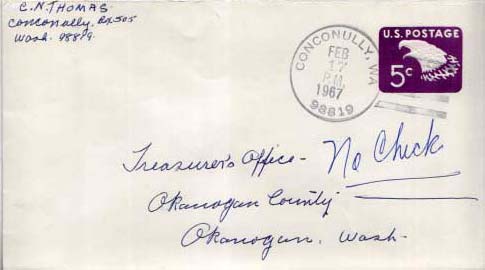 C.N. THOMAS
Conconully. Bx 505
Wash. 98819.
U.S. POSTAGE
5¢
CONCONULLY, WA
FEB
17
P.M.
1967
98819
Treasurer's Office - No Check
Okanogan County
Okanogan, Wash.